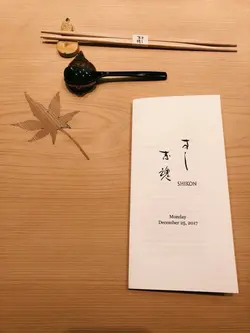 すし
志魂
SHIKON
Monday
December 25, 2017